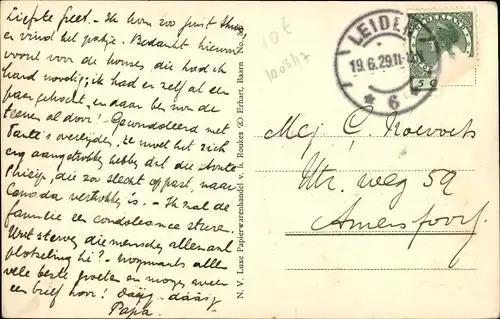 Liefste Greet. - Ik kom zoo juist thuis
en vind het pakje. Bedankt hiervoor
vooral voor de kousen die had ik
hard noodig; ik had er zelf al een
paar gekocht, en daar ben ik de
teenen al door! Gecondoleerd met
Tante's overlijden, ze moet het zich
erg aangetrokken hebben dat die
die zoo slecht oppast, naar
Canada vertrokken is. - Ik zal de
familie een condoleance sturen.
Wat sterven die menschen allemaal
plotseling hè? - nogmaals allen
vele beste groeten en morgen weer
een brief hoor! Daag - daag
Papa.
N. V. Luxe Papierwarenhandel v. h. Roukes & Erhart, Baarn No.
10 E
1003/17
LEIDEN
19.6.29.11-12
★ 6
NEDERLAND
5 C
Mej. C. Roevoets
Utr. weg 59
Amersfoort.